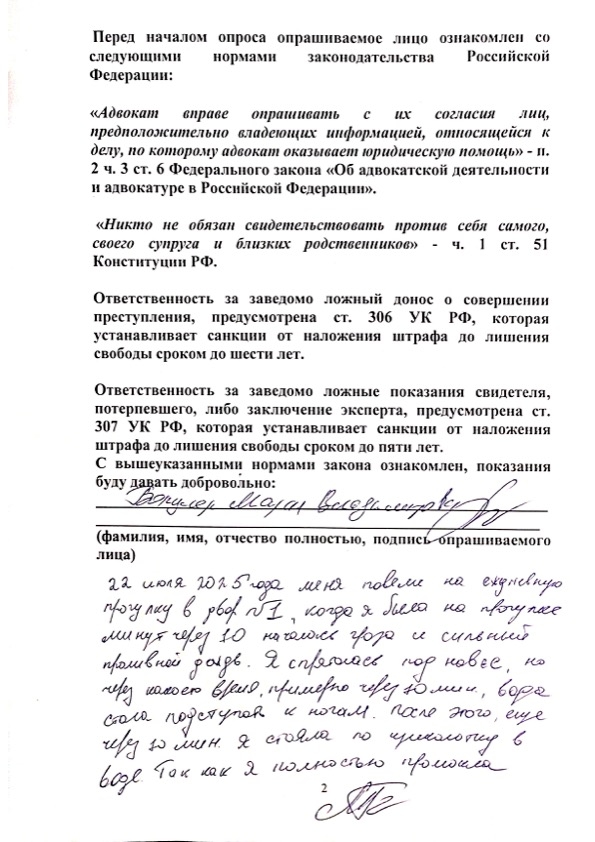 Перед началом опроса опрашиваемое лицо ознакомлен со
следующими нормами законодательства Российской
Федерации:
«Адвокат вправе опрашивать с их согласия лиц,
предположительно владеющих информацией, относящейся к
делу, по которому адвокат оказывает юридическую помощь» - п.
2 ч. 3 ст. 6 Федерального закона «Об адвокатской деятельности
и адвокатуре в Российской Федерации».
«Никто не обязан свидетельствовать против себя самого,
своего супруга и близких родственников» - ч. 1 ст. 51
Конституции РФ.
Ответственность за заведомо ложный донос о совершении
преступления, предусмотрена ст. 306 УК РФ, которая
устанавливает санкции от наложения штрафа до лишения
свободы сроком до шести лет.
Ответственность за заведомо ложные показания свидетеля,
потерпевшего, либо заключение эксперта, предусмотрена ст.
307 УК РФ, которая устанавливает санкции от наложения
штрафа до лишения свободы сроком до пяти лет.
С вышеуказанными нормами закона ознакомлен, показания
буду давать добровольно:
Владимировна
(фамилия, имя, отчество полностью, подпись опрашиваемого
лица)
22 июля 2025 года меня повели на ежедневную
прогулку в двор №1, когда я была на прогулке
минут через 10 началась гроза и сильный
проливной дождь. Я спряталась под навес, но
через какое-то время, примерно через 10 мин, вода
стала подступать к ногам. После этого, еще
через 10 мин. я стояла по щиколотку в
воде. Так как я полностью промокла
2